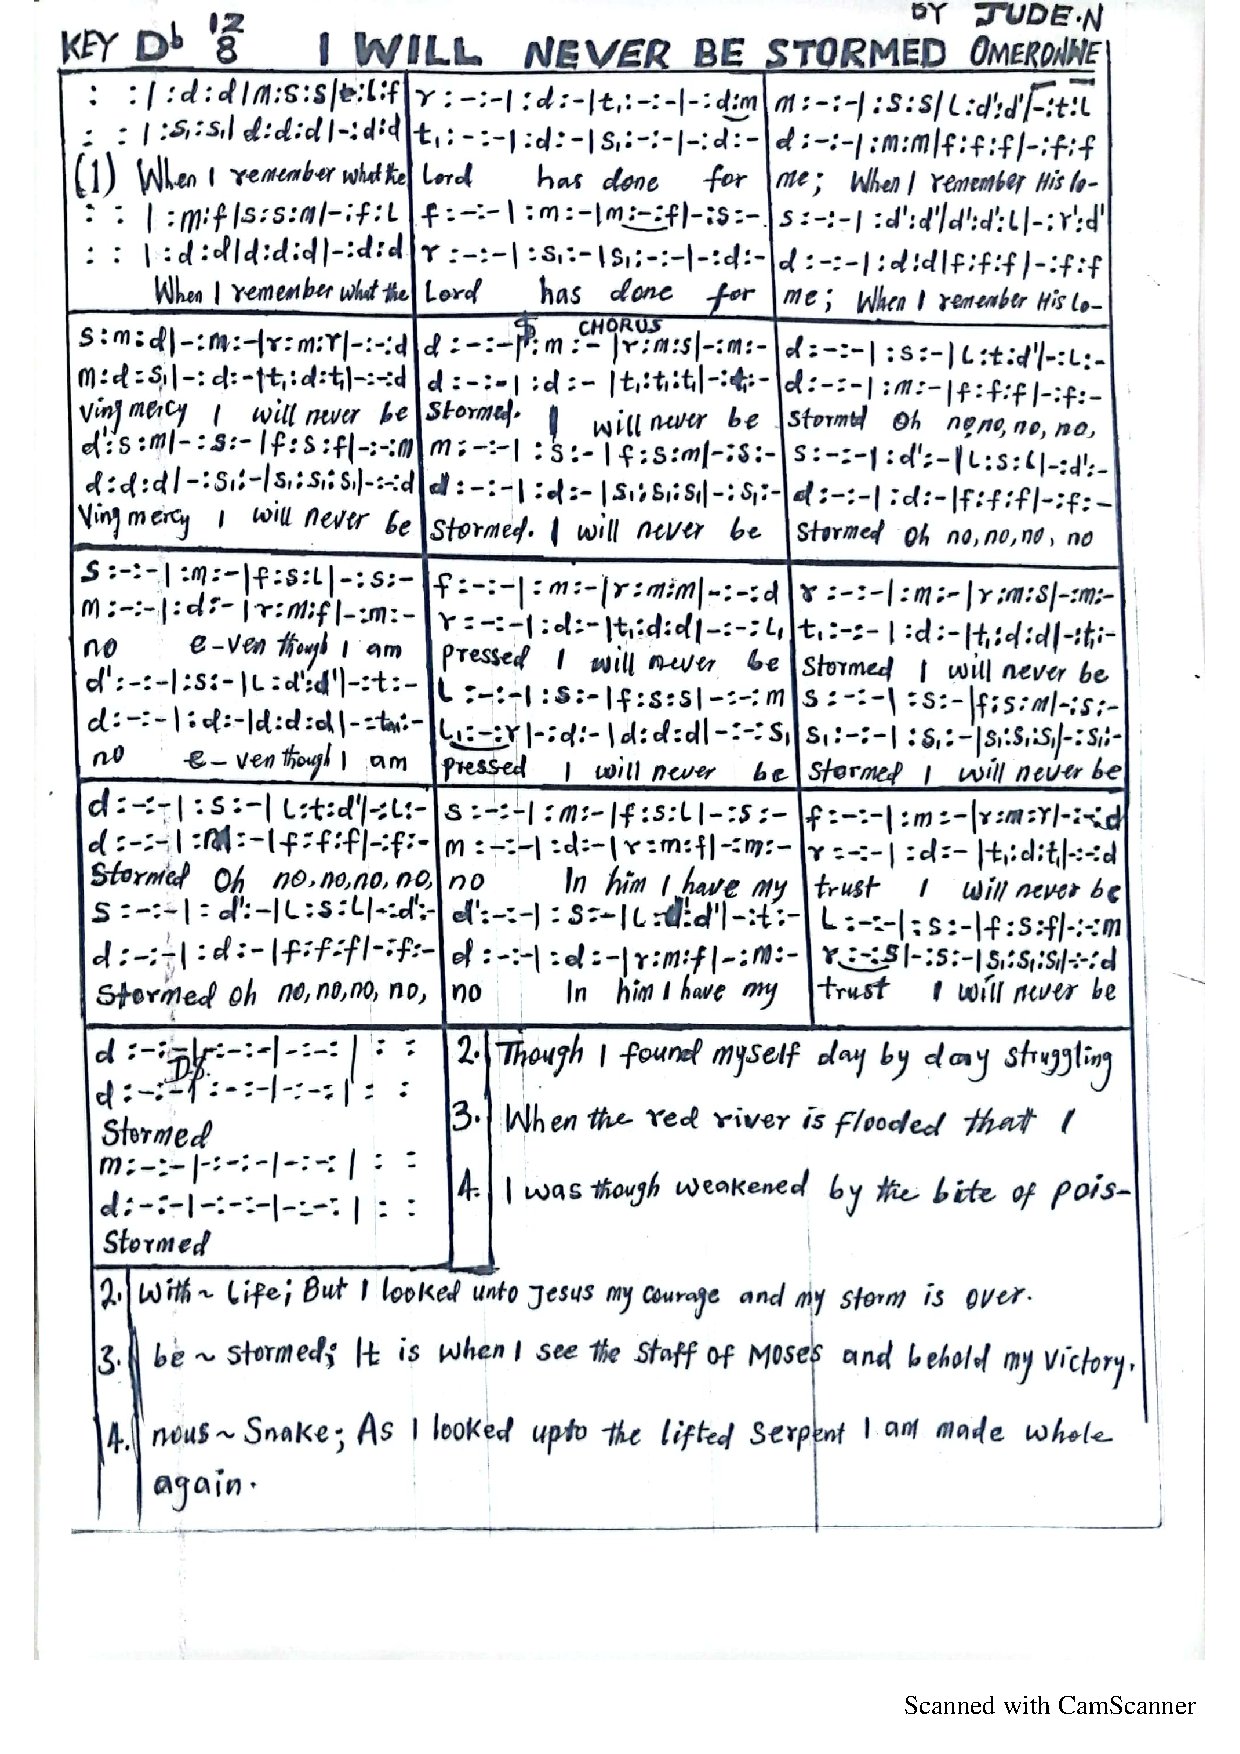 BY JUDE.N
KEY Db 12/8 I WILL NEVER BE STORMED OMERONWE
: : | : d : d | m : s : s | : l : f | r : - : - | : d : - | t₁ : - : - | - : d : m | m : - : - | : s : s | l : d' : d' | - : t : l
: : | : s₁ : s₁ | d : d : d | - : d : d | t₁ : - : - | : d : - | s₁ : - : - | - : d : - | d : - : - | : m : m | f : f : f | - : f : f
(1) When I remember what the Lord has done for me; When I remember His lo-
: : | : m : f | s : s : m | - : f : l | f : - : - | : m : - | m : - : f | - : s : - | s : - : - | : d' : d' | d' : d' : l | - : r' : d'
: : | : d : d | d : d : d | - : d : d | r : - : - | : s₁ : - | s₁ : - : - | - : d : - | d : - : - | : d : d | f : f : f | - : f : f
When I remember what the Lord has done for me; When I remember His lo-
$ CHORUS
s : m : d | - : m : - | r : m : r | - : - : d | d : - : - | : m : - | r : m : s | - : m : - | d : - : - | : s : - | l : t : d' | - : l : -
m : d : s₁ | - : d : - | t₁ : d : t₁ | - : - : d | d : - : - | : d : - | t₁ : t₁ : t₁ | - : t₁ : - | d : - : - | : m : - | f : f : f | - : f : -
ving mercy I will never be Stormed. I will never be Stormed Oh no, no, no, no,
d' : s : m | - : s : - | f : s : f | - : - : m | m : - : - | : s : - | f : s : m | - : s : - | s : - : - | : d' : - | l : s : l | - : d' : -
d : d : d | - : s₁ : - | s₁ : s₁ : s₁ | - : - : d | d : - : - | : d : - | s₁ : s₁ : s₁ | - : s₁ : - | d : - : - | : d : - | f : f : f | - : f : -
Ving mercy I will never be Stormed. I will never be Stormed Oh no, no, no, no
s : - : - | : m : - | f : s : l | - : s : - | f : - : - | : m : - | r : m : m | - : - : d | r : - : - | : m : - | r : m : s | - : m : -
m : - : - | : d : - | r : m : f | - : m : - | r : - : - | : d : - | t₁ : d : d | - : - : l₁ | t₁ : - : - | : d : - | t₁ : d : d | - : t₁ : -
no e-ven though I am pressed I will never be Stormed I will never be
d' : - : - | : s : - | l : d' : d' | - : t : - | l : - : - | : s : - | f : s : s | - : - : m | s : - : - | : s : - | f : s : m | - : s : -
d : - : - | : d : - | d : d : d | - : : - | l₁ : - : r | - : d : - | d : d : d | - : - : s₁ | s₁ : - : - | : s₁ : - | s₁ : s₁ : s₁ | - : s₁ : -
no e-ven though I am pressed I will never be Stormed I will never be
d : - : - | : s : - | l : t : d' | - : l : - | s : - : - | : m : - | f : s : l | - : s : - | f : - : - | : m : - | r : m : r | - : - : d
d : - : - | : m : - | f : f : f | - : f : - | m : - : - | : d : - | r : m : f | - : m : - | r : - : - | : d : - | t₁ : d : t₁ | - : - : d
Stormed Oh no, no, no, no, no In him I have my trust I will never be
s : - : - | : d' : - | l : s : l | - : d' : - | d' : - : - | : s : - | l : d' : d' | - : t : - | l : - : - | : s : - | f : s : f | - : - : m
d : - : - | : d : - | f : f : f | - : f : - | d : - : - | : d : - | r : m : f | - : m : - | r : - : s | - : s : - | s₁ : s₁ : s₁ | - : - : d
Stormed Oh no, no, no, no, no In him I have my trust I will never be
d : - : - | - : - : - | - : - : - | : :
D$
d : - : - | - : - : - | - : - : - | : :
Stormed
m : - : - | - : - : - | - : - : - | : :
d : - : - | - : - : - | - : - : - | : :
Stormed
2. Though I found myself day by day struggling
3. When the red river is flooded that I
4. I was though weakened by the bite of pois-
2. With ~ Life; But I looked unto Jesus my courage and my storm is over.
3. be ~ stormed; It is when I see the Staff of Moses and behold my victory.
4. nous ~ Snake; As I looked upto the lifted Serpent I am made whole
again.
Scanned with CamScanner